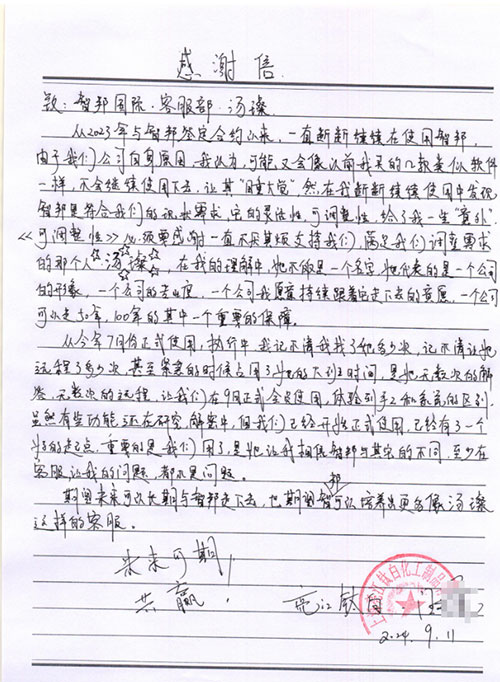 感谢信
致：智邦国际·客服部·汤璨
从2023年与智邦签定合约以来，一直断断续续在使用智邦，
由于我们公司自身原因，我认为，可能又会像以前我买的几款类似软件
一样，不会继续使用下去，让其“睡大觉”，然在我断断续续使用中发现
智邦是符合我们的诉求要求，它的灵活性，可调整性，给了我一些“意外”
《可调整性》必须要感谢一直不厌其烦支持我们，满足我们调整要求
的那个人汤璨，在我的理解中，她不仅是一个名字，她代表的是一个公司
的形象，一个公司的态度，一个公司我愿意持续跟着它走下去的意愿，一个公司
可以走50年，100年的其中一个重要的保障。
从今年7月份正式使用，执行中，我记不清我找了她多少次，记不清让她
远程了多少次，甚至紧急的时候占用了她的下班时间，是她无数次的解
答，无数次的远程，让我们在9月正式全员使用，体验到手工和系统的区别，
虽然有些功能，还在研究、解密中，但我们已经开始正式使用，已经有了一个
好的起点，重要的是我们用了，是她让我相信智邦与其它的不同，至少在
客服，让我的问题，都不是问题。
期望未来可以长期与智邦走下去，也期望智邦可以培养出更多像汤璨
这样的客服。
未来可期，
共赢！
亮江钛白
江钛白化工制品
2024.9.11